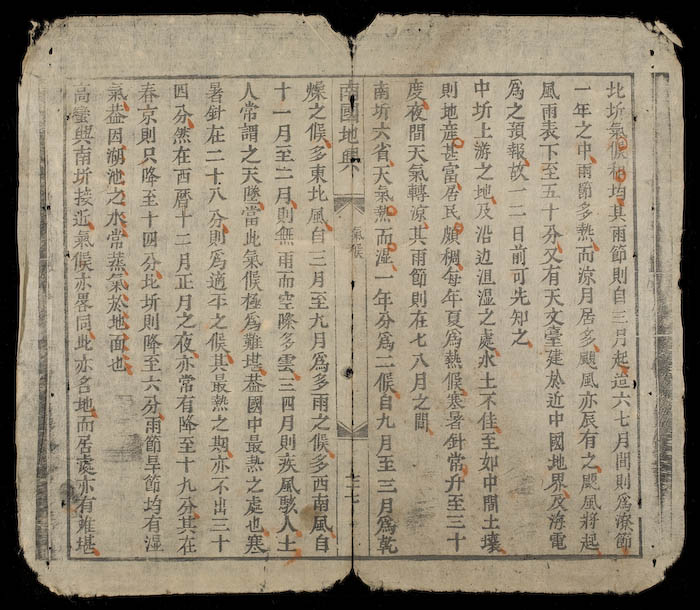 北圻氣候稍均其雨節則自三月起這六七月間則爲潦節
一年之中雨節多熱而涼月居多颶風亦辰有之颶風將起
風雨表下至五十分又有天文臺建於近中國地界及海電
爲之預報故一二日前可先知之
中圻上游之地及沿边沮湿之處水土不佳至如中間土壤
則地產甚富居民頗稠每年夏爲熱候寒暑針常升至三十
度夜間天氣轉凉其雨節則在七八月之間
南圻六省天氣熱而湿一年分爲二候自九月至三月爲乾
南國地輿
氣候
三七
燥之候多東北風自三月至九月爲多雨之候多西南風自
十一月至二月則無雨而空際多雲三四月則疾風駭人土
人常謂之天墜當此氣候極爲難堪葢國中最熱之處也寒
暑針在二十八分則爲適平之候其最熱之期亦不出三十
四分然在西曆十二月正月之夜亦常有降至十九分其在
春京則只降至十四分北圻則降至六分雨節旱節均有湿
氣葢因湖池之水常蒸氣於地面也
高蠻與南圻接近氣候亦畧同此亦名地而居處亦有難堪